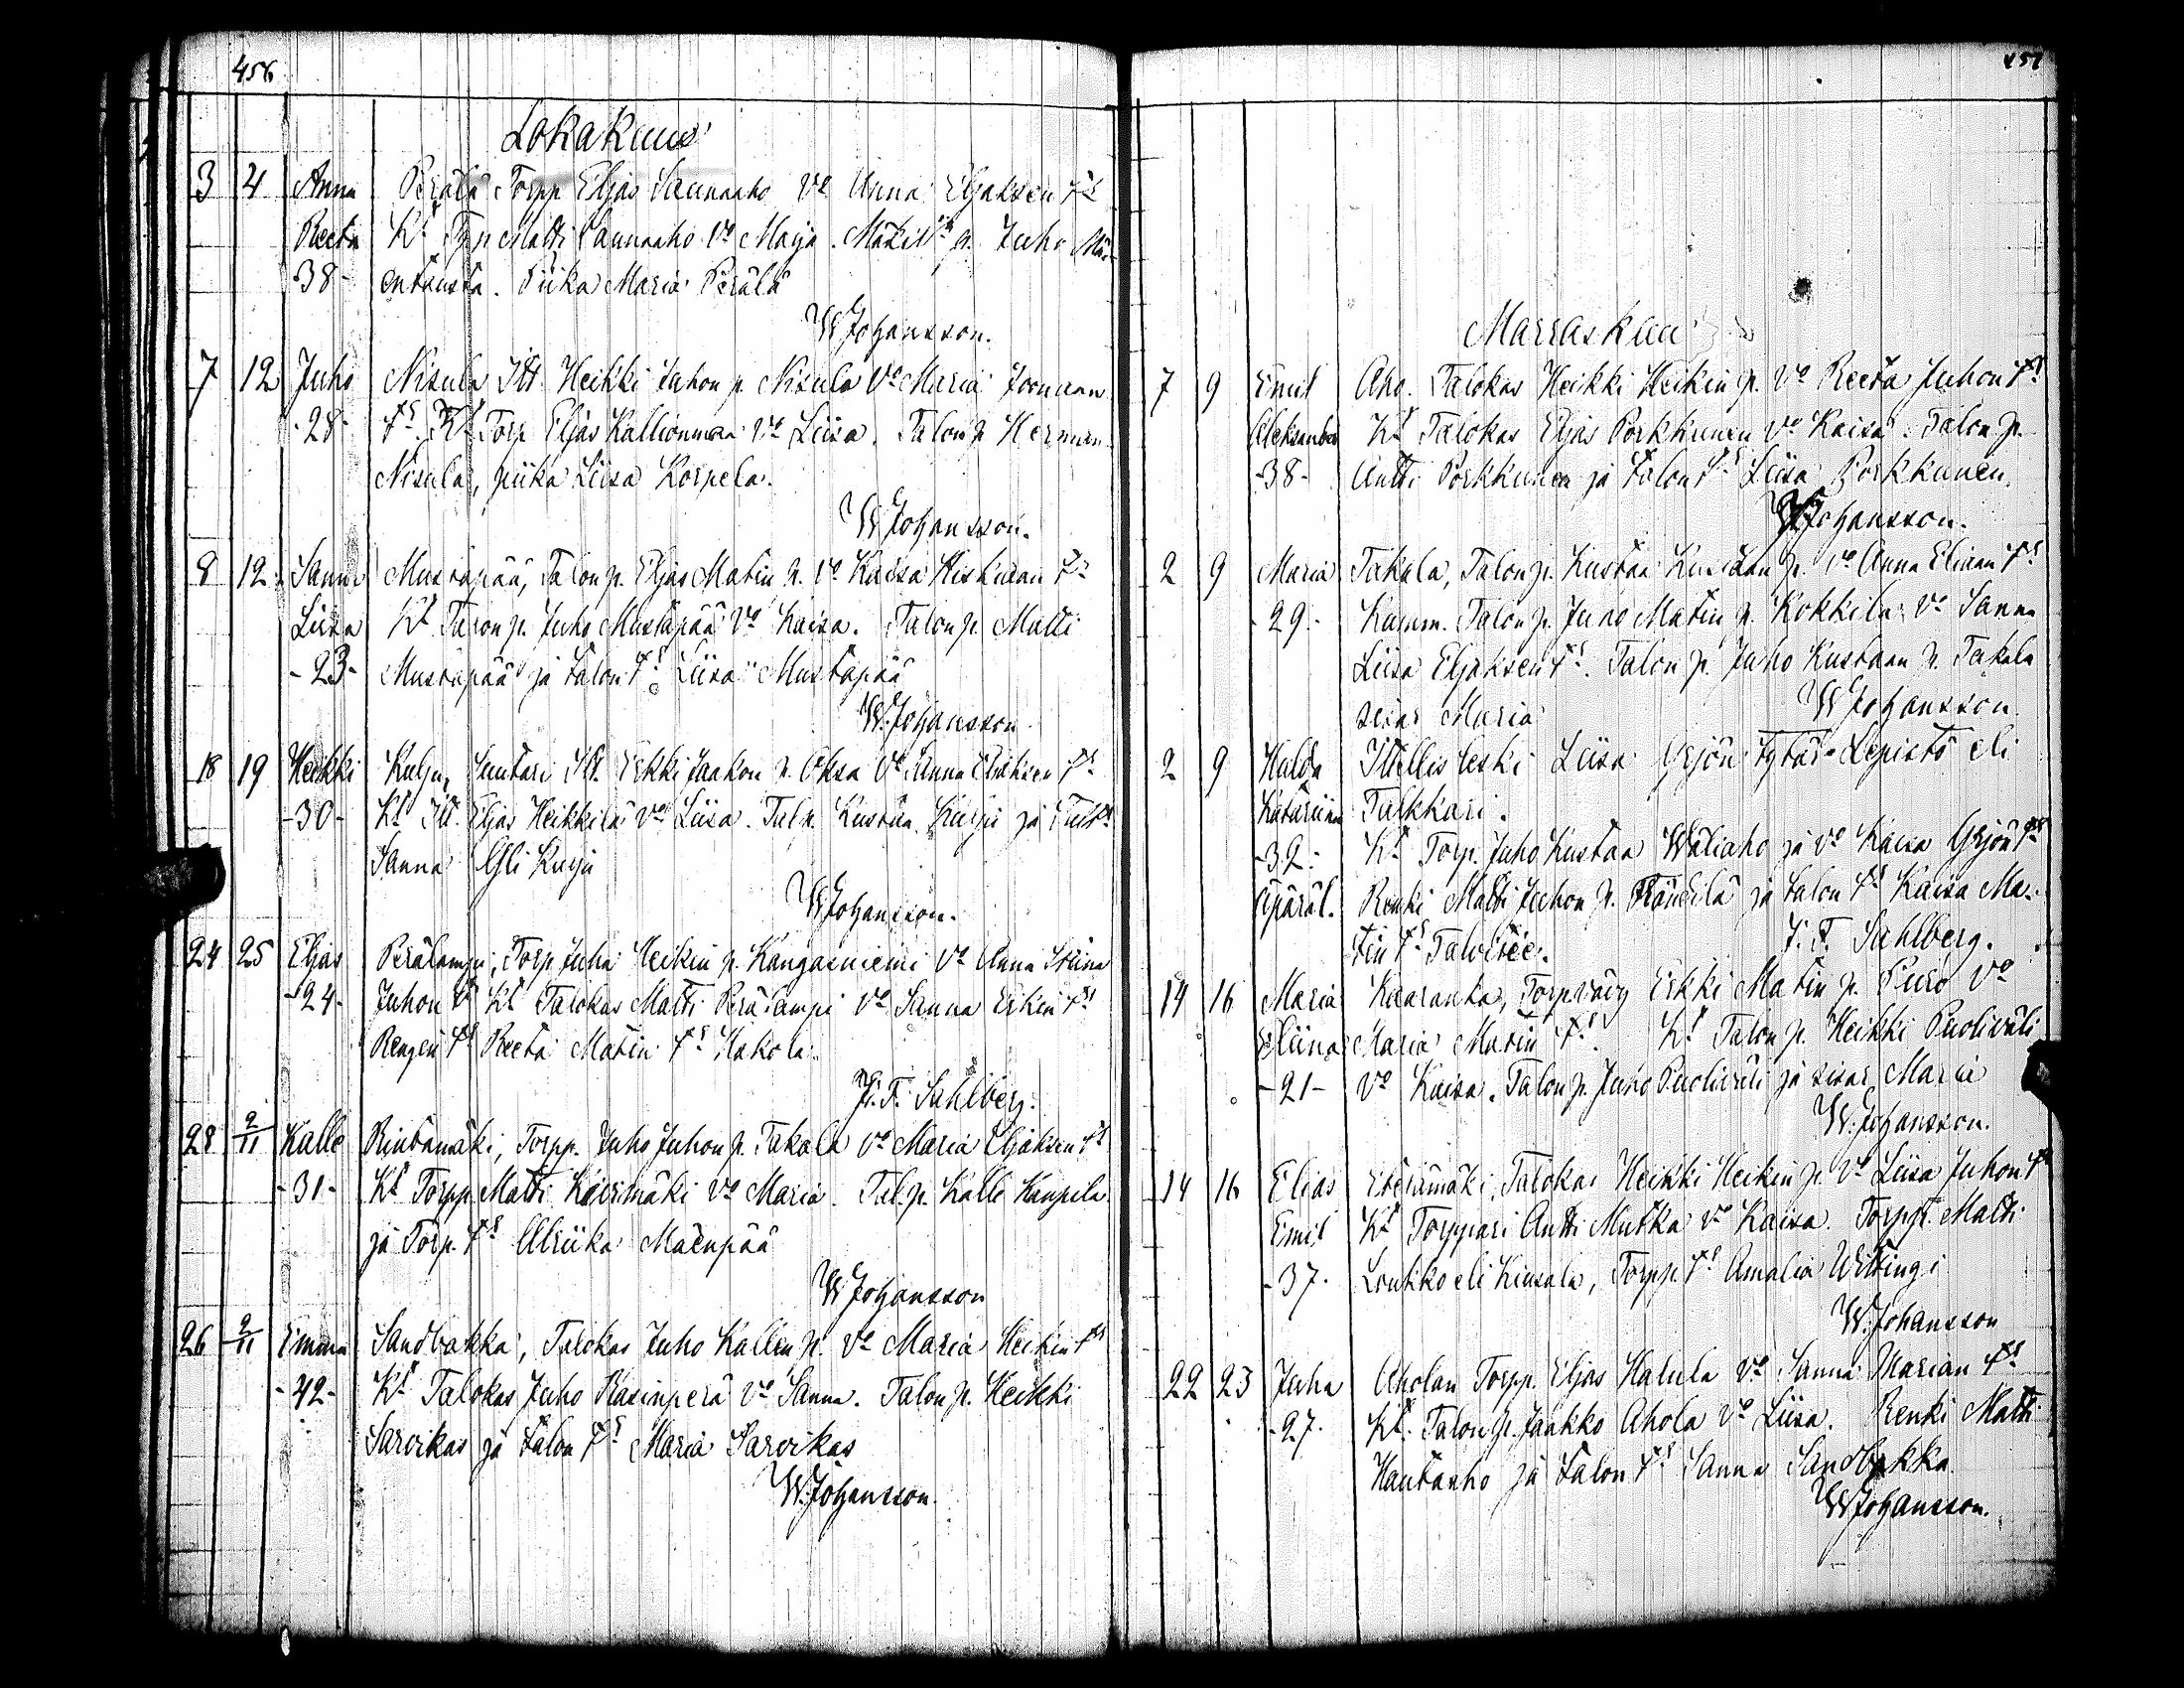 456
Lokakuus
3 4 Anna Perälä Torpp Eljas Saunaaho Vo Anna Eljaksen trs
Reeta Kt Matti Saunaaho Vo Maija p. Juho
-38- Piika Maria Perälä
W Johansson.
7 12 Juho Nisula Itt. Heikki Juhon p. Nisula Vo Maria Joonaan
-28- trs. Kt Torp Eljas Kallionmaa Vo Liisa. Talon p Herman
Nisula, piika Liisa Korpela.
W Johansson.
8 12 Sanna Mustapää, Talon p. Eljas Matin p. Vo Kaisa Kiskuan trs
Liisa Kt Talon p. Juho Mustapää Vo Kaisa. Talon p. Matti
-23- Mustapää ja talon trs Liisa Mustapää
W. Johansson
18 19 Heikki Kulju, Suutari Itt. Erkki Jaakon p. Oksa Vo Sanna Eljaksen trs
-30- Kt Itt. Eljas Heikkilä Vo Liisa. Tal p. Kustaa Kulju ja
Sanna Kulju
W Johansson.
24 25 Eljas Perälampi, Torp Juha Heikin p. Kangasniemi Vo Anna Stiina
-24- Juhon t Kt Talokas Matti Perälampi Vo Sanna Erkin trs
Rengin trs Reeta Matin trs Hakola.
J. F. Sahlberg.
28 2/11 Kalle Rintamäki, Torpp. Juho Juhon p. Takala Vo Maria Eljaksen trs
-31- Kt Torpp. Matti Vo Maria. Tal. p. Kalle Kaupila
ja Torp. trs Ulriika Mäenpää
W Johansson
26 2/11 Emma Sandbakka, Talokas Juho Kallen p. Vo Maria Heikin trs
-42- Kt Talokas Juho Rasinperä Vo Sanna. Talon p. Heikki
Sarvikas ja talon trs Maria Sarvikas
W. Johansson.
457
Marraskuu
7 9 Emil Aho. Talokas Heikki Heikin p. Vo Reeta Juhon trs
Aleksander Kt Talokas Eljas Porkkunen Vo Kaisa. Talon p.
-38- Antti Porkkunen ja talon trs Liisa Porkkunen.
W Johansson.
2 9 Maria Takala, Talon p. Kustaa Kustaan p. Vo Anna Eliaan trs
-29- Kumm. Talon p. Juho Matin p. Kokkila Vo Sanna
Liisa Eljaksen trs. Talon p. Juho Kustaan p. Takala
sisar Maria
W Johansson
2 9 Hulda Itsellis leski Liisa Yrjön tytär Lepistö eli
Katariina Talkkari.
-32- Kt Torp. Juho Kustaa Wäliaho ja Vo Kaisa Yrjön trs
Äpäräl. Renki Matti Juhon p. ja talon trs Kaisa Ma-
tin trs Talvitie.
J. F. Sahlberg.
14 16 Maria Kaaranka, Torpvävy Erkki Matin p. Puro Vo
Eliina Maria Matin trs. Kt Talon p. Heikki Puoliväli
-21- Vo Kaisa. Talon p. Juho Puoliväli ja sisar Maria
W. Johansson.
14 16 Elias Etelämäki, Talokas Heikki Heikin p. Vo Liisa Juhon trs
Emil Kt Torppari Antti Mutka Vo Kaisa. Torpp. Matti
-37- Loukko eli Kinsala, Torpp. trs Amalia Wittingi
W. Johansson
22 23 Juha Aholan Torpp. Eljas Hatula Vo Sanna Marian trs
-27- Kt. Talon p. Jaakko Ahola Vo Liisa. Renki Matti
Hautaaho ja talon trs Sanna Sandbakka
W Johansson.